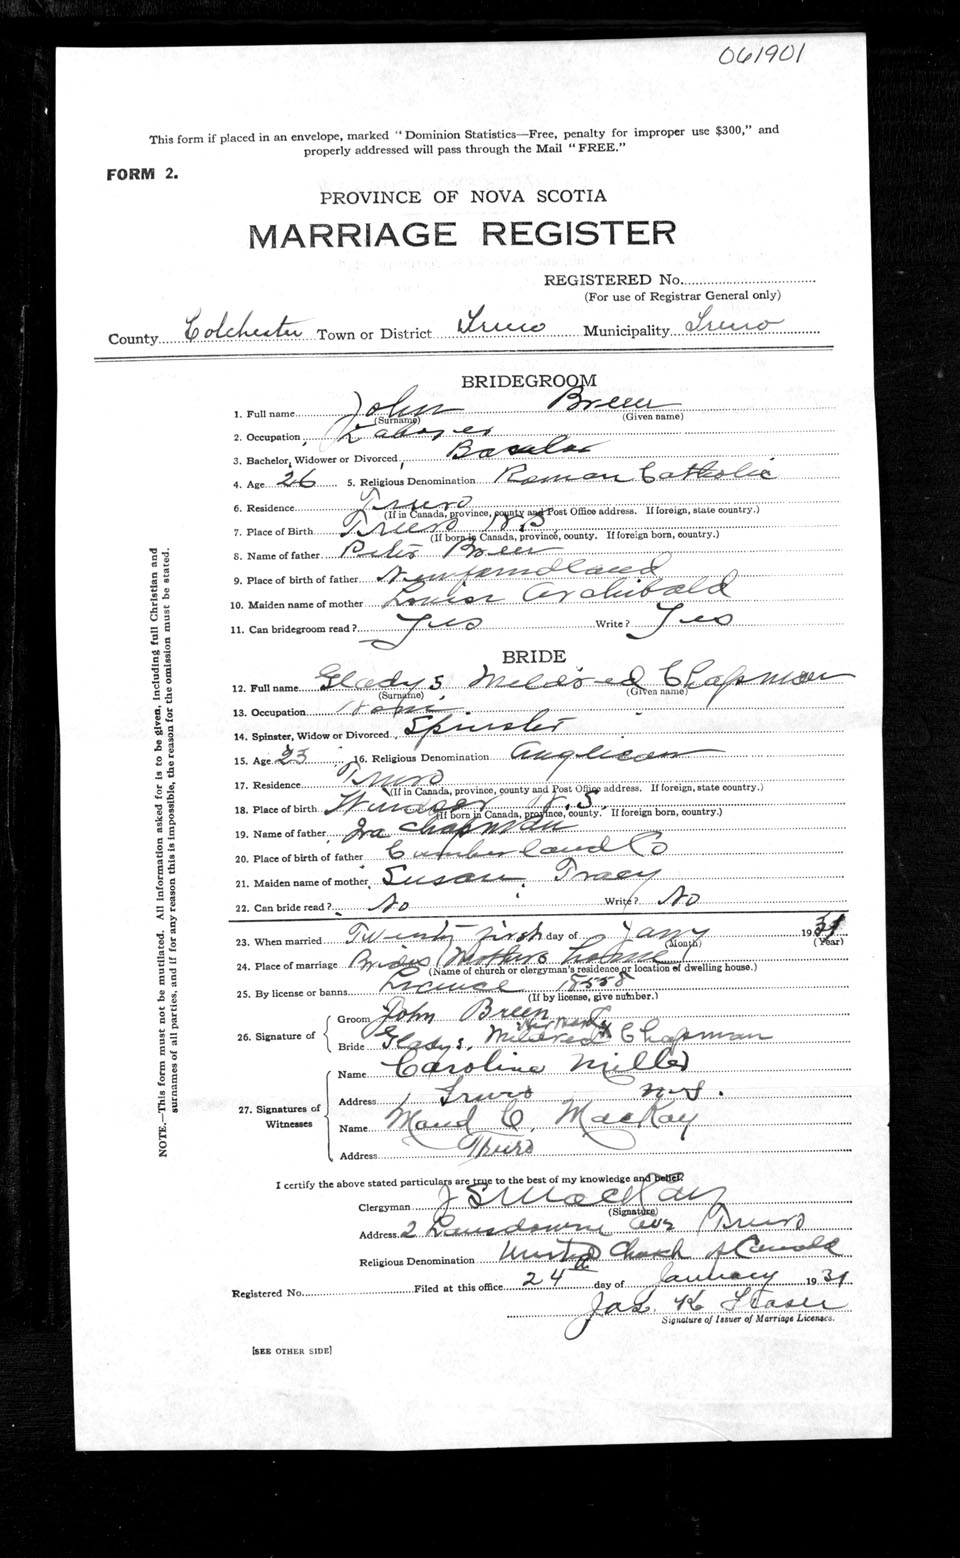 061901
This form if placed in an envelope, marked "Dominion Statistics—Free, penalty for improper use $300," and
properly addressed will pass through the Mail "FREE."
FORM 2.
PROVINCE OF NOVA SCOTIA
MARRIAGE REGISTER
REGISTERED No.
(For use of Registrar General only)
County Colchester Town or District Truro Municipality Truro
BRIDEGROOM
1. Full name John Breen
(Surname) (Given name)
2. Occupation Laborer
3. Bachelor, Widower or Divorced, Bachelor
4. Age 26 5. Religious Denomination Roman Catholic
6. Residence Truro
(If in Canada, province, county and Post Office address. If foreign, state country.)
7. Place of Birth Truro
(If born in Canada, province, county. If foreign born, country.)
8. Name of father Peter Breen
9. Place of birth of father Newfoundland
10. Maiden name of mother Louisa Archibald
11. Can bridegroom read? Yes Write? Yes
BRIDE
12. Full name Gladys Mildred Chapman
(Surname) (Given name)
13. Occupation
14. Spinster, Widow or Divorced Spinster
15. Age 23 16. Religious Denomination Anglican
17. Residence Truro
(If in Canada, province, county and Post Office address. If foreign, state country.)
18. Place of birth Windsor N.S.
(If born in Canada, province, county. If foreign born, country.)
19. Name of father Ira Chapman
20. Place of birth of father Cumberland Co
21. Maiden name of mother Susan Tracy
22. Can bride read? No Write? No
23. When married Twenty first day of Jany 1931
(Month) (Year)
24. Place of marriage Brides Mothers home
(Name of church or clergyman's residence or location of dwelling house.)
25. By license or banns License 18558
(If by license, give number.)
26. Signature of Groom John Breen
Her mark X
Bride Gladys Mildred Chapman
27. Signatures of Witnesses
Name Caroline Miller
Address Truro N.S.
Name Maud C. MacKay
Address Truro
I certify the above stated particulars are true to the best of my knowledge and belief.
Clergyman J S MacKay
(Signature)
Address 2 Lansdowne Ave Truro
Religious Denomination United Church of Canada
Registered No. Filed at this office 24th day of January 1931
Jas. K Fraser
Signature of Issuer of Marriage Licenses.
[SEE OTHER SIDE]
NOTE.—This form must not be mutilated. All information asked for is to be given, including full Christian and
surnames of all parties, and if for any reason this is impossible, the reason for the omission must be stated.